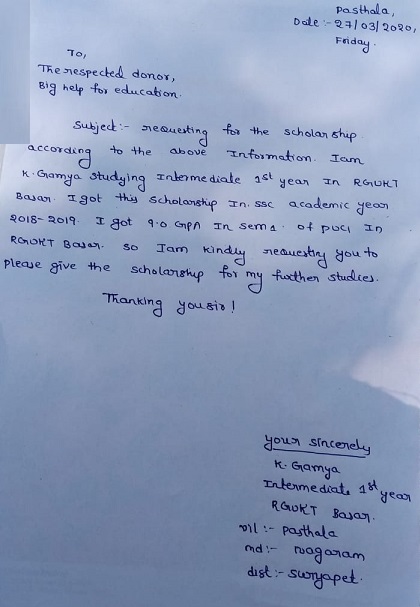 Pasthala,
Date :- 27/03/2020,
Friday.
To,
The respected donor,
Big help for education.
Subject:- requesting for the scholarship.
according to the above Information. Iam
K. Gamya studying Intermediate 1st year In RGUKT
Basar. I got this scholarship In. ssc academic year
2018-2019. I got 9.0 GPA In sem1. of puc1 In
RGUKT Basar. so Iam kindly requesting you to
please give the scholarship for my further studies.
Thanking yousir!
your sincerely
K. Gamya
Intermediate 1st year
RGUKT Basar.
vil :- pasthala
md:- nagaram
dist:- suryapet.